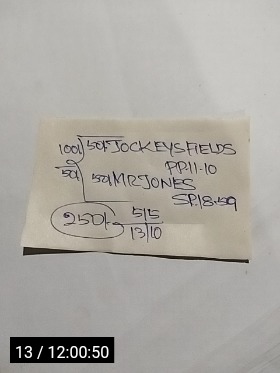 100/ 50/ JOCKEYSFIELDS
PP.11-10
50/ 50/ MR JONES
SP.18-59
250/- 5/5
13/10
13 / 12:00:50